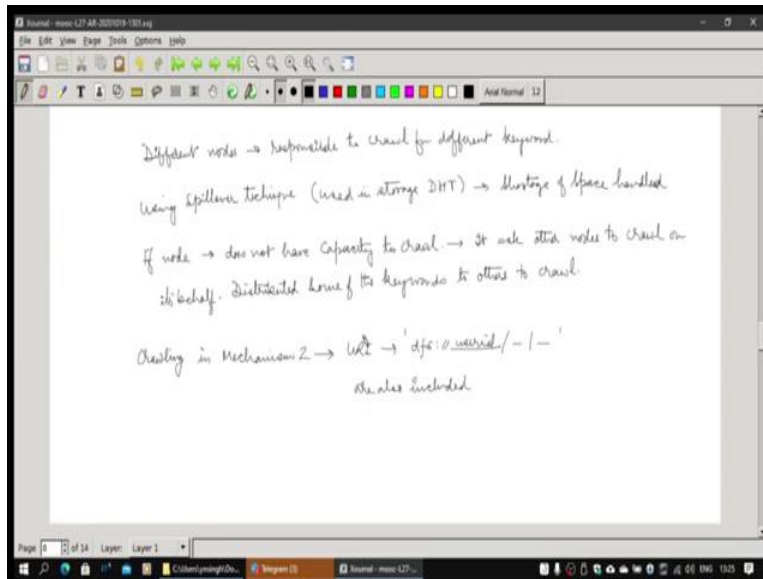 Xournal - mooc-L27-AR-20201019-1301.xoj
File Edit View Page Tools Options Help
Arial Normal 12
Different nodes → responsible to crawl for different keyword.
Using spillover technique (used in storage DHT) → shortage of space handled
If node → does not have capacity to crawl. → It ask other nodes to crawl on
its behalf. Distributed some of the keywords to others to crawl.
Crawling in Mechanism 2 → URI → 'dfs://userid/-/-'
are also included
Page 8 of 14 Layer: Layer 1
C:\Users\ynsingh\Do... Telegram (1) Xournal - mooc-L27-... ENG 13:25